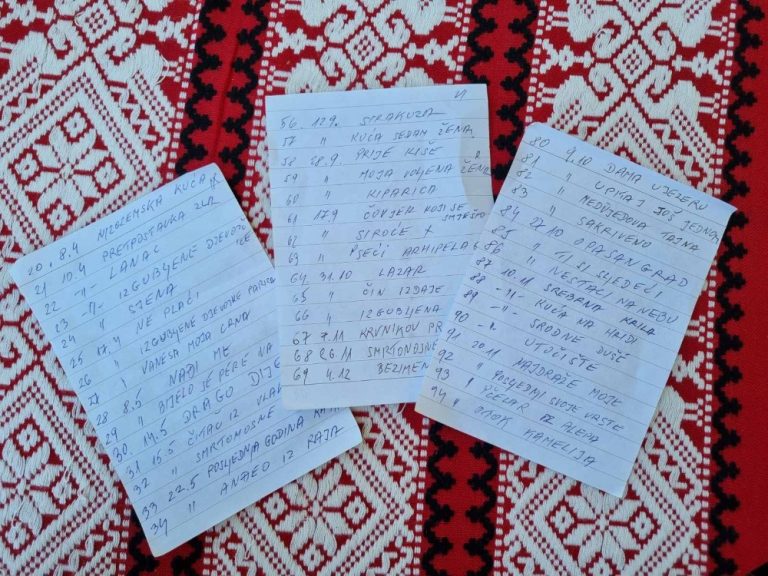 20. 8.4 NIZOZEMSKA KUĆA
21 10.4 PRETPOSTAVKA ZLA
22 -"- LANAC
23 -"- IZGUBLJENE DJEVOJČICE
24 " SJENA
25 17.4 NE PLAČI
26 " IZGUBLJENE DJEVOJKE PARIZA
27 " VANESA MOJA CRNA
28 8.5 NAĐI ME
29 " BIJELO SE PERE NA
30. 14.5 DRAGO DIJE
31 15.5 ČITAČ IZ VLAK
32 " SMRTONOSNE
33 22.5 POSLJEDNJA GODINA
34 " ANĐEO IZ RAJA
VI
56. 12.9. SIRAKUZA
57 " KUĆA SEDAM ŽENA
58 28.9. PRIJE KIŠE
59 " MOJA VOLJENA ŽENA
60 " KIPARICA
61 17.9 ČOVJEK KOJI SE SMJEŠIO
62 " SIROČE X
63 " PSEĆI ARHIPELA
64 31.10 LAZAR
65 " ČIN IZDAJE
66 " IZGUBLJENA
67 7.11 KRVNIKOV PR
68 26.11 SMRTONOSNE
69 4.12 BEZIMEN
80 9.10 DAMA U JEZERU
81 " UPITAJ JOŠ JEDNOM
82 " MEDVJEDOVA TAJNA
83 " SAKRIVENO
84 27.10 OPASAN GRAD
85 " TI SI SLJEDEĆI
86 " NESTAĆI NA NEBU
87 10.11 SREBRNA KRILA
88 -"- KUĆA NA HRIDI
89 -"- SRODNE DUŠE
90 -"- UTOČIŠTE
91 20.11 NAJDRAŽE MOJE
92 " POSLJEDNJI SVOJE VRSTE
93 " PČELAR IZ ALEPA
94 " OTOK KAMELIJA